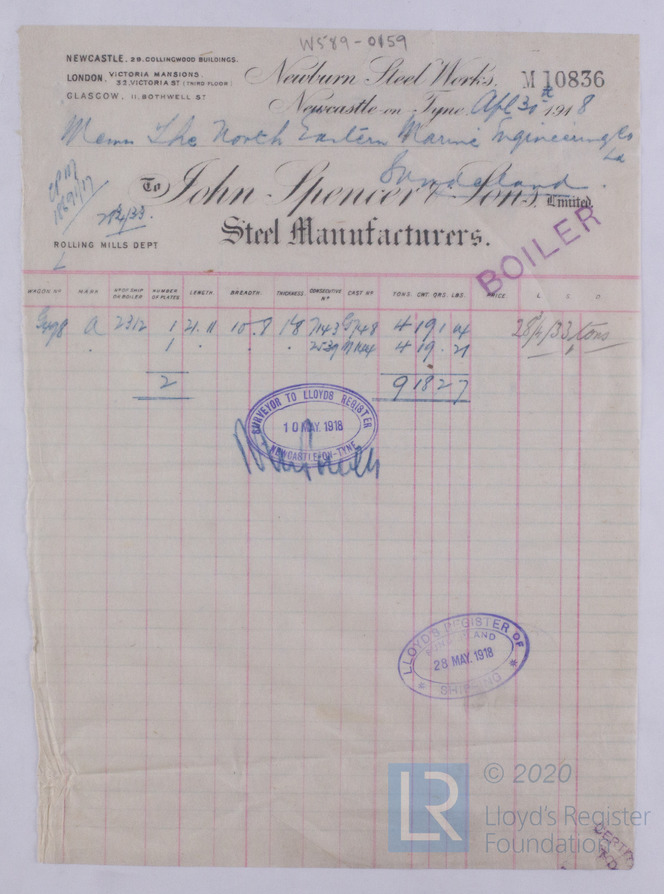 W589-0159
NEWCASTLE, 28, COLLINGWOOD BUILDINGS.
LONDON, VICTORIA MANSIONS,
32, VICTORIA ST (THIRD FLOOR)
GLASGOW, 11, BOTHWELL ST
Newburn Steel Works,
M 10836
Newcastle-on-Tyne, Apl 30th 1918
The North Eastern Marine Engineering Co
Ld
Sunderland
To John Spencer & Sons, Limited,
Steel Manufacturers.
ROLLING MILLS DEPT
BOILER
WAGON Nº MARK Nº OF SHIP OR BOILER NUMBER OF PLATES LENGTH BREADTH. THICKNESS CONSECUTIVE Nº CAST Nº TONS. CWT. QRS. LBS. PRICE. £. S. D.
A 2312 1 21.11 10.8 4 19 1
1 4 19 . 21
2 9 18 2 7
tons
SURVEYOR TO LLOYDS REGISTER
10 MAY. 1918
NEWCASTLE-ON-TYNE
LLOYD'S REGISTER OF
SUNDERLAND
28 MAY. 1918
SHIPPING
LR
© 2020
Lloyd's Register
Foundation